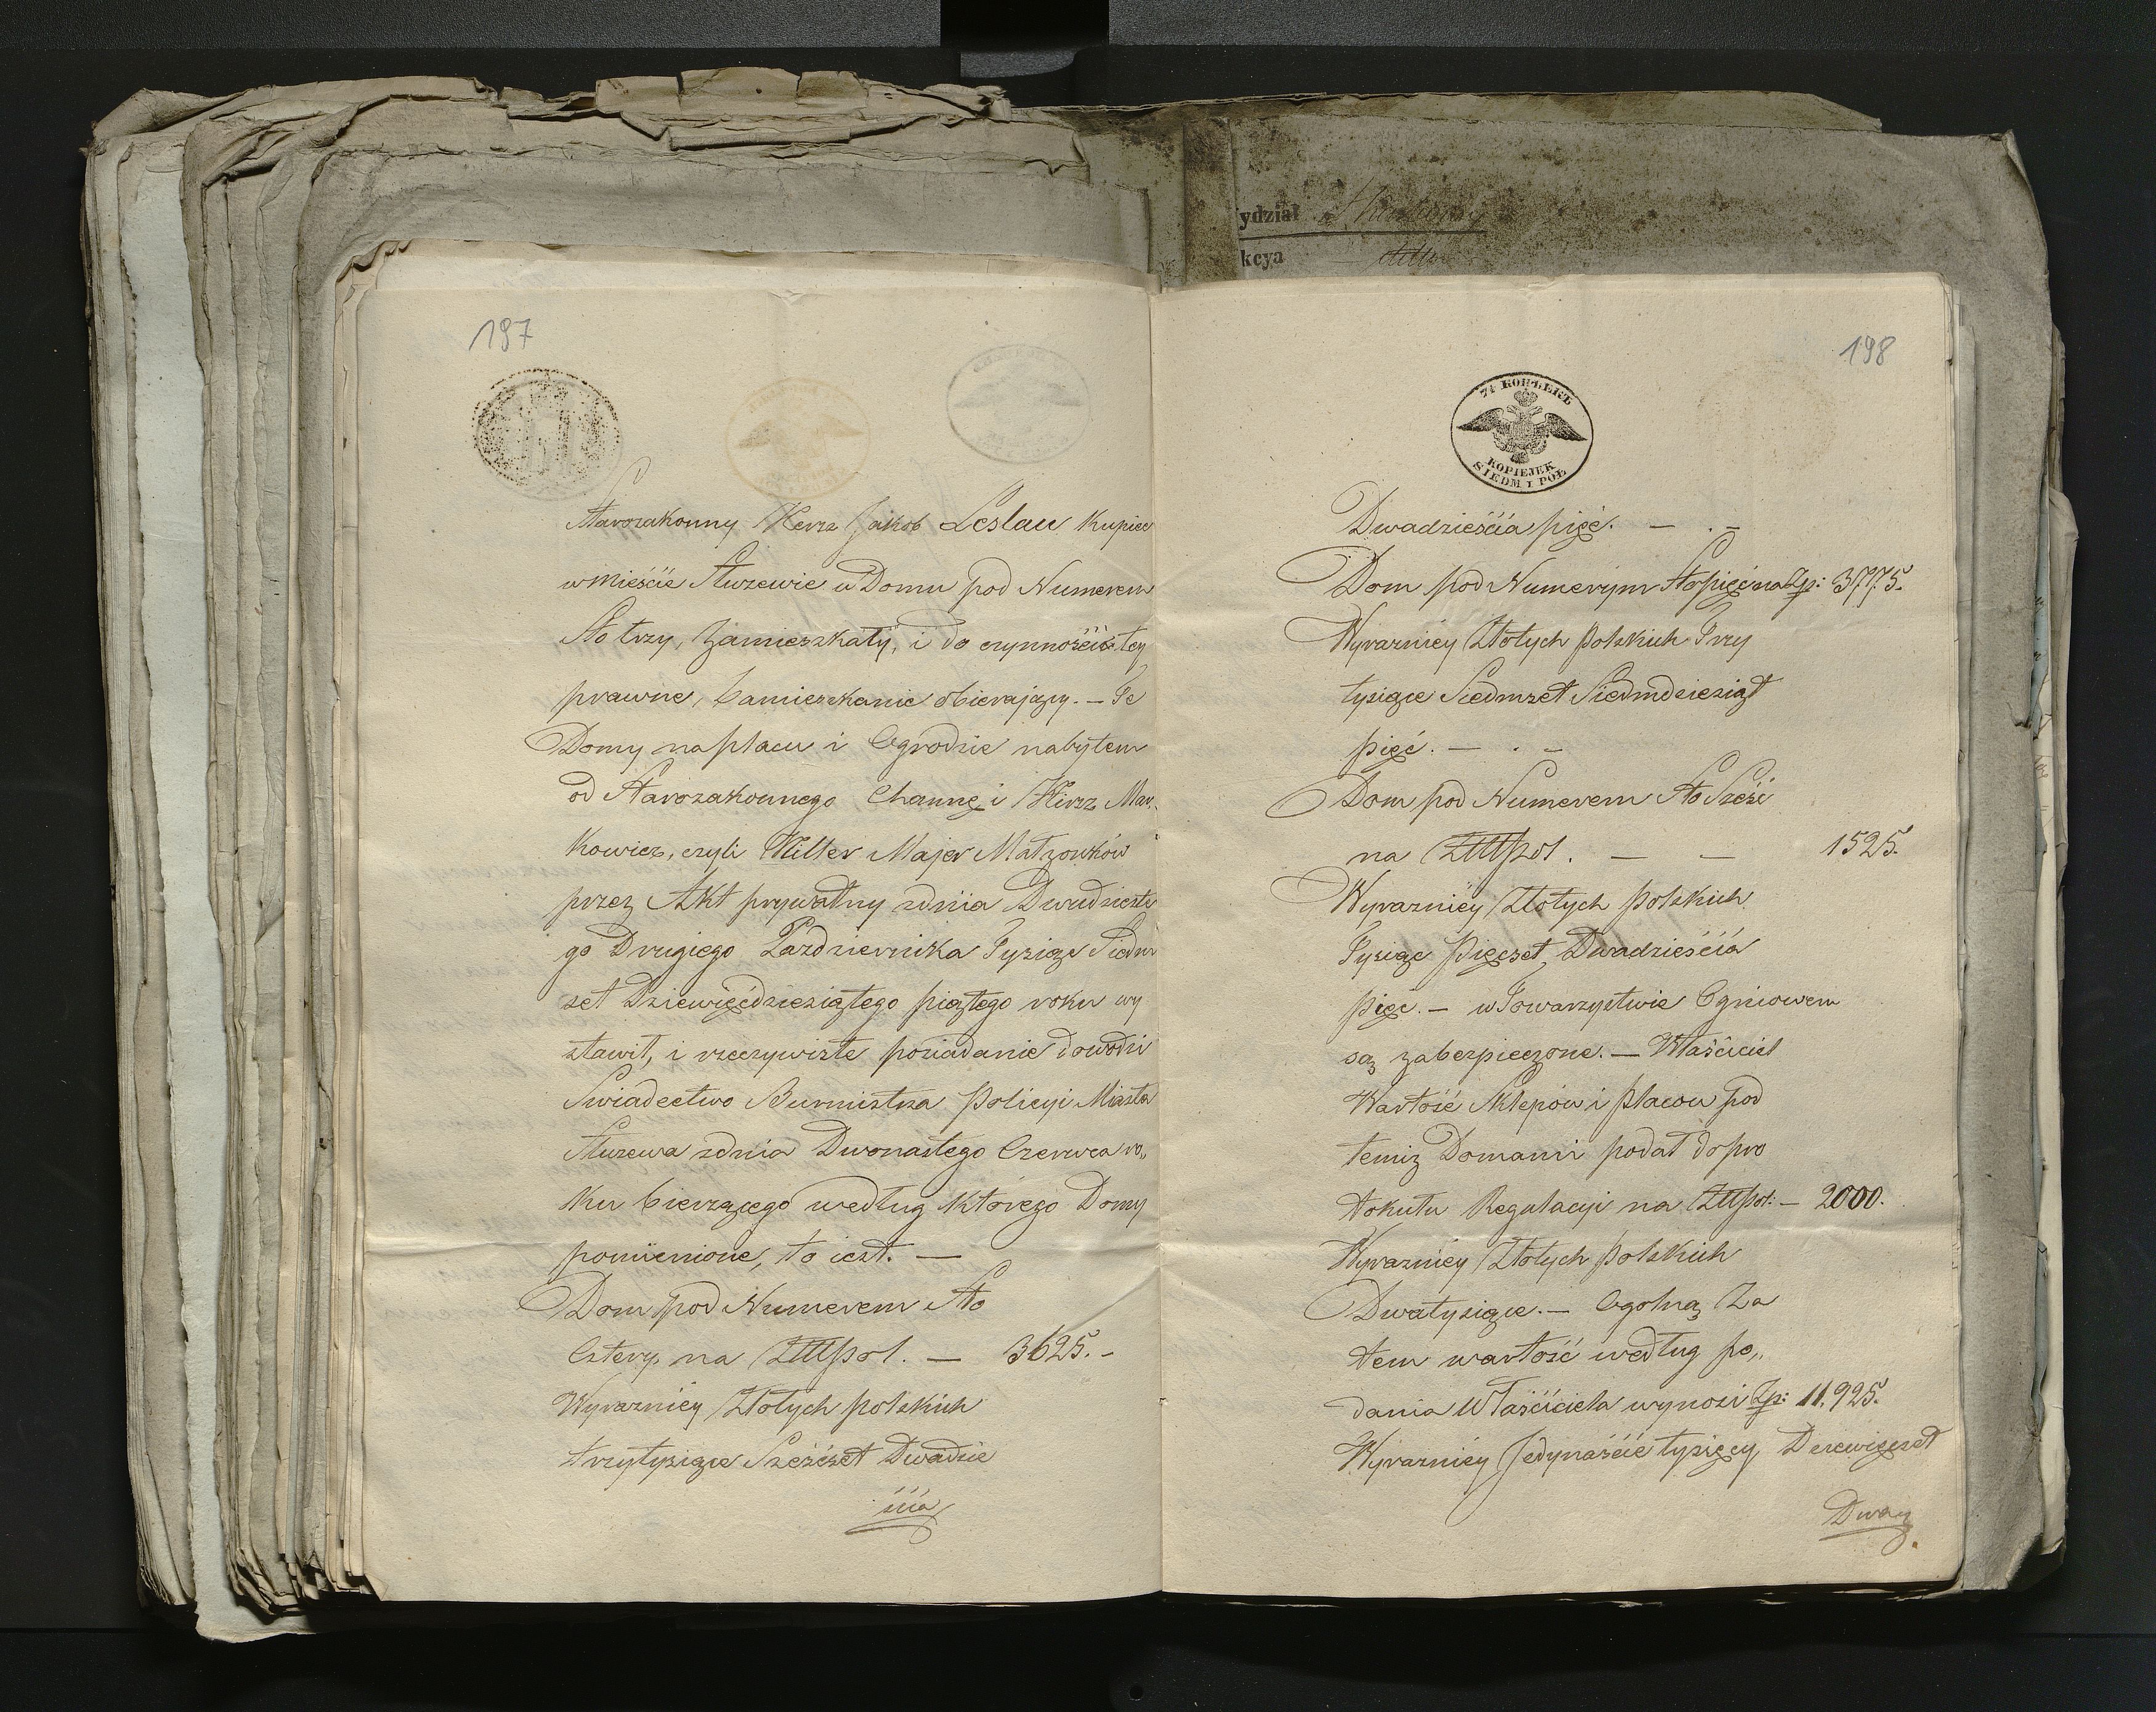 ydział
kcya
197
Starozakonny Hersz Jakob Leslau Kupiec
w Mieście Stuzewie w Domu pod Numerem
Sto trzy, Zamieszkały, i do czynności tey
prawne, Zamieszkanie obierający. — Te
Domy na placu i Ogrodzie nabytem
od Starozakonnego Channę i Hirsz Mar„
kowicz, czyli Hiller Majer Małzonków
przez Akt prywatny z dnia Dwudzieste
go Drugiego Października Tysiąc Siedm
set Dziewięćdziesiątego piątego roku wy
stawił, i rzeczywiste posiadanie dowodzi
Swiadectwo Burmistrza Policyi Miasta
Stuzewa z dnia Dwonastego Czerwca ro„
ku bierzącego według którego Domy
pomienione, to iest. —
Dom pod Numerem Sto
Cztery na Złłpol. — 3625. -
Wyrazniéy Złotych polskich
trzy tysiące Sześćset Dwadzie
ścia
198
7½ КОПѢЕКЪ
KOPIEJEK
SIEDM I POŁ
Dwadzieścia pięć. — . —
Dom pod Numerym Sto pięć na Zp: 3775.
Wyrazniéy Złotych polskich Trzy
tysiące Siedmset Siedmdziesiąt
pięć. — . —
Dom pod Numerem Sto Sześć
na Złłpol. — — 1525.
Wyrazniéy Złotych polskich
Tysiąc Pięćset Dwadzieścia
pięć. — w Towarzystwie Ogniowem
są zabezpieczone. — Właściciel
Wartość Sklepów i placow pod
temiz Domami podał do pro
tokułu Regulacyi na Złłpol: — 2000.
Wyrazniéy Złotych polskich
Dwa tysiące. — Ogolną Za
tem wartość według po„
dania Właściciela wynosi Zp: 11,925.
Wyrazniéy Jedynaście tysięcy Dziewięćset
Dwa